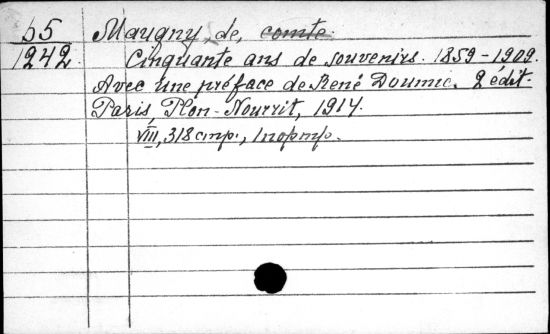 65
1242
Maugny, de, comte.
Cinquante ans de souvenirs. 1859-1909.
Avec une préface de René Doumic. 2 édit.
Paris, Plon-Nourrit, 1914.
VIII, 318 стр., 1 портр.